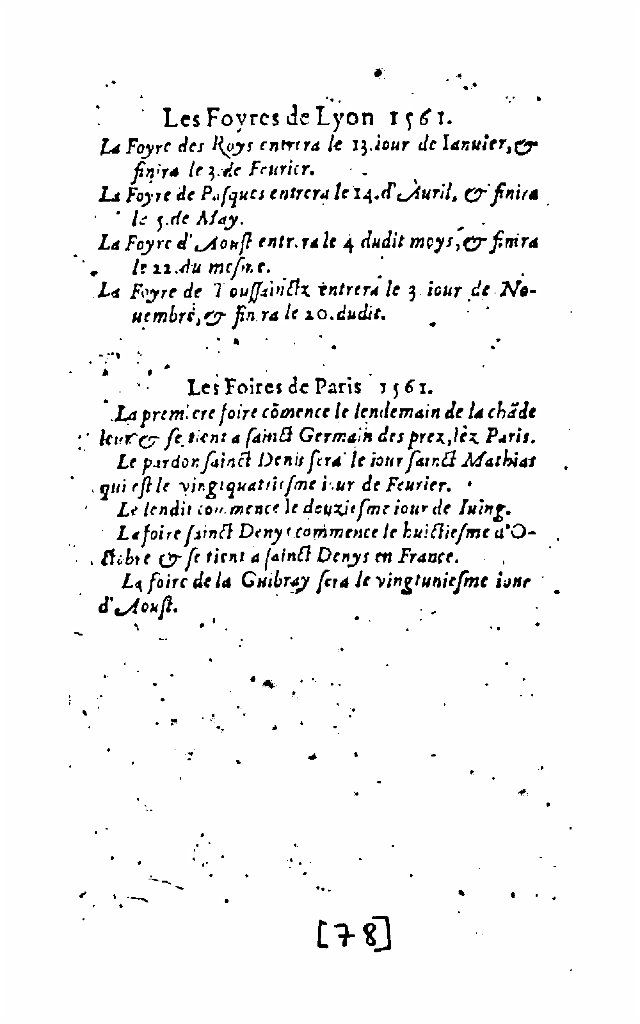 Les Foyres de Lyon 1561.
La Foyre des Roys entrera le 13.iour de Ianuier,&
finira le 3.de Feurier.
La Foyre de Pasques entrera le 14.d'Auril, & finira
le 5.de May.
La Foyre d'Aoust entrera le 4 dudit moys,& finira
le 22.du mesme.
La Foyre de Toussainctz entrera le 3 iour de No-
uembre,& finira le 20.dudit.
Les Foires de Paris 1561.
La premiere foire cōmence le lendemain de la chāde
leur & se tient a sainct Germain des prez,lez Paris.
Le pardon sainct Denis sera le iour sainct Mathias
qui est le vingtquatriesme iour de Feurier.
Le lendit commence le douziesme iour de Iuing.
La foire sainct Denys commence le huictiesme d'O-
ctobre & se tient a sainct Denys en France.
La foire de la Guibray sera le vingtuniesme iour
d'Aoust.
[78]